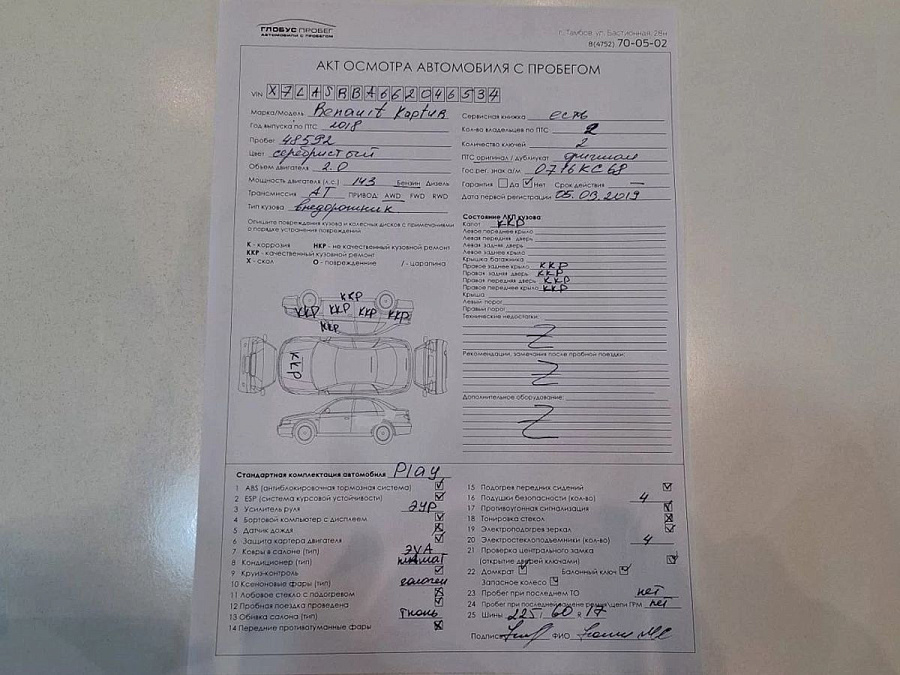 ГЛОБУС ПРОБЕГ
АВТОМОБИЛИ С ПРОБЕГОМ
г. Тамбов ул. Бастионная, 28н
8(4752) 70-05-02
АКТ ОСМОТРА АВТОМОБИЛЯ С ПРОБЕГОМ
VIN X7LASRBA662046534
Марка/Модель Renault Каптив
Год выпуска по ПТС 2018
Пробег 48592
Цвет серебристый
Объем двигателя 2.0
Мощность двигателя (л.с.) 143 Бензин Дизель
Трансмиссия АТ ПРИВОД: AWD FWD RWD
Тип кузова внедорожник
Опишите повреждения кузова и колесных дисков с примечаниями
о порядке устранения повреждений.
К - коррозия НКР - на качественный кузовной ремонт
ККР - качественный кузовной ремонт
Х - скол О - повреждение / - царапина
ККР
ККР ККР ККР ККР
ККР
ККР
Сервисная книжка есть
Кол-во владельцев по ПТС 2
Количество ключей 2
ПТС оригинал / дубликат оригинал
Гос рег. знак а/м О716КС68
Гарантия Да Нет Срок действия —
Дата первой регистрации 05.03.2019
Состояние ЛКП кузова:
Капот ККР
Левое переднее крыло
Левая передняя дверь
Левая задняя дверь
Левое заднее крыло
Крышка багажника
Правое заднее крыло ККР
Правая задняя дверь ККР
Правая передняя дверь ККР
Правое переднее крыло ККР
Крыша
Левый порог
Правый порог
Технические недостатки:
Z
Рекомендации, замечания после пробной поездки:
Z
Дополнительное оборудование:
Z
Стандартная комплектация автомобиля Play
1 ABS (антиблокировочная тормозная система)
2 ESP (система курсовой устойчивости)
3 Усилитель руля ЭУР
4 Бортовой компьютер с дисплеем
5 Датчик дождя
6 Защита картера двигателя
7 Ковры в салоне (тип) ЭVA
8 Кондиционер (тип) климат
9 Круиз-контроль
10 Ксеноновые фары (тип) галоген
11 Лобовое стекло с подогревом
12 Пробная поездка проведена
13 Обивка салона (тип) ткань
14 Передние противотуманные фары
15 Подогрев передних сидений
16 Подушки безопасности (кол-во) 4
17 Противоугонная сигнализация
18 Тонировка стекол
19 Электроподогрев зеркал
20 Электростеклоподъемники (кол-во) 4
21 Проверка центрального замка
(открытие дверей ключами)
22 Домкрат Балонный ключ
Запасное колесо
23 Пробег при последнем ТО нет
24 Пробег при последней замене ремня/цепи ГРМ нет
25 Шины 225/ 60 R 17
Подпись ФИО